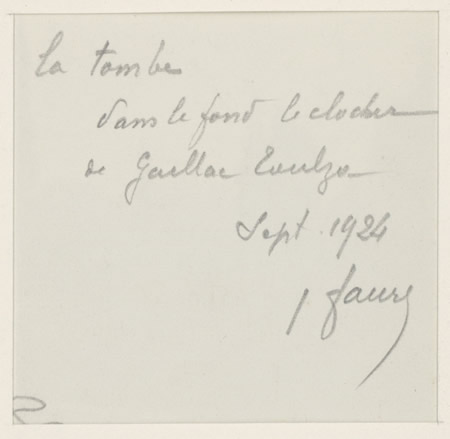 la tombe
dans le fond le clocher
de Gaillac Toulza
Sept. 1924
J Faure